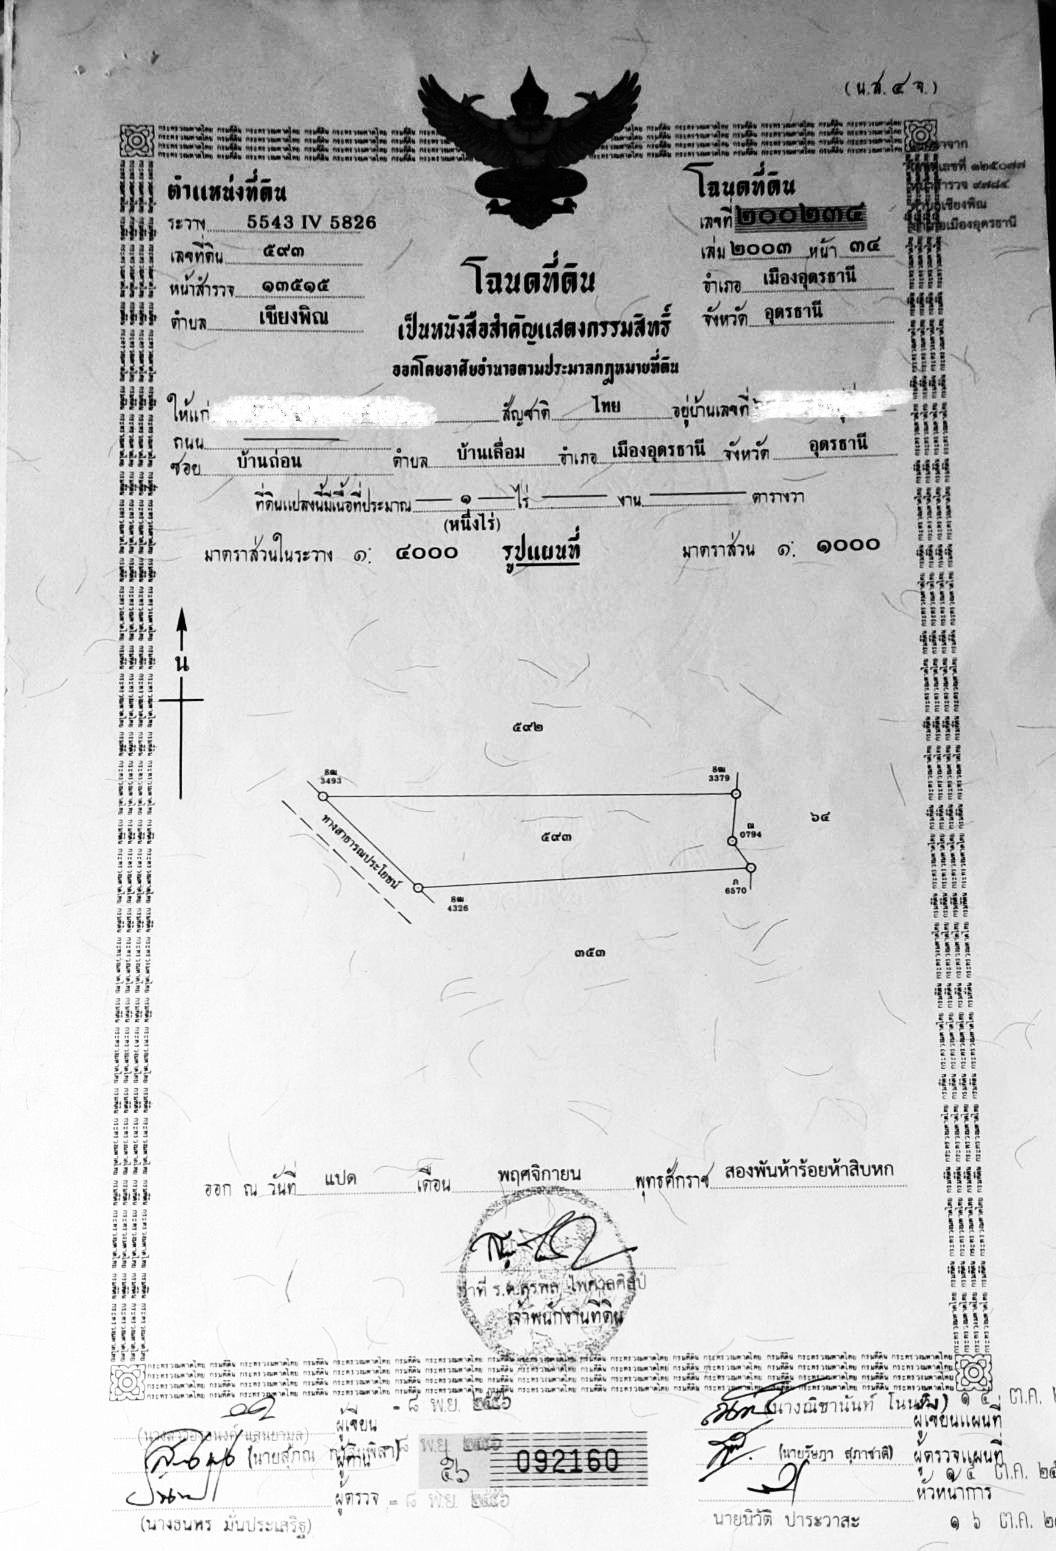 (น.ส. ๔ จ.)
ตำแหน่งที่ดิน
ระวาง 5543 IV 5826
เลขที่ดิน ๕๙๓
หน้าสำรวจ ๑๓๕๑๕
ตำบล เชียงพิณ
โฉนดที่ดิน
เลขที่ ๒๐๐๒๓๔
เล่ม ๒๐๐๓ หน้า ๓๔
อำเภอ เมืองอุดรธานี
จังหวัด อุดรธานี
เลขที่ ๑๒๕๐๗๗
หน้าสำรวจ ๙๗๘๔
ตำบลเชียงพิณ
อำเภอเมืองอุดรธานี
โฉนดที่ดิน
เป็นหนังสือสำคัญแสดงกรรมสิทธิ์
ออกโดยอาศัยอำนาจตามประมวลกฎหมายที่ดิน
ให้แก่ สัญชาติ ไทย อยู่บ้านเลขที่
ถนน
ซอย บ้านถ่อน ตำบล บ้านเลื่อม อำเภอ เมืองอุดรธานี จังหวัด อุดรธานี
ที่ดินแปลงนี้มีเนื้อที่ประมาณ ๑ ไร่ งาน ตารางวา
(หนึ่งไร่)
มาตราส่วนในระวาง ๑: ๔๐๐๐ รูปแผนที่ มาตราส่วน ๑: ๑๐๐๐
น
๕๙๒
3493
3379
๖๔
ทางสาธารณประโยชน์
๕๙๓
ณ
0794
ภ
6570
4326
๓๕๓
ออก ณ วันที่ แปด เดือน พฤศจิกายน พุทธศักราช สองพันห้าร้อยห้าสิบหก
เจ้าพนักงานที่ดิน
ผู้เขียน - ๘ พ.ย. ๒๕๕๖
(นางณิชานันท์
ผู้เขียนแผนที่ ๑ ๕ ต.ค.
ผู้ตรวจแผนที่
๑ ๕ ต.ค.
หัวหน้าการ
นายนิวัติ ปาระวาสะ ๑ ๖ ต.ค.
092160
ผู้ตรวจ - ๘ พ.ย. ๒๕๕๖
(นางธนพร มันประเสริฐ)